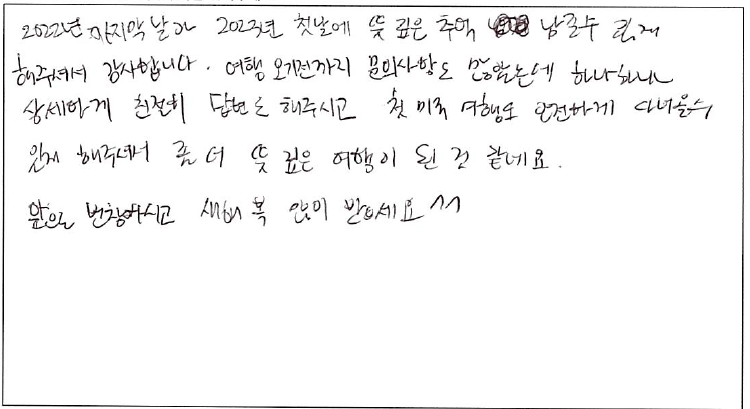 2022년 마지막 날과 2023년 첫날에 뜻 깊은 추억 남길수 있게
해주셔서 감사합니다. 여행 오기전까지 문의사항도 많았는데 하나하나
상세하게 친절히 답변도 해주시고 첫 미국 여행도 안전하게 다녀올수
있게 해주셔서 좀 더 뜻 깊은 여행이 된 것 같네요.
앞으로 번창하시고 새해 복 많이 받으세요 ^^